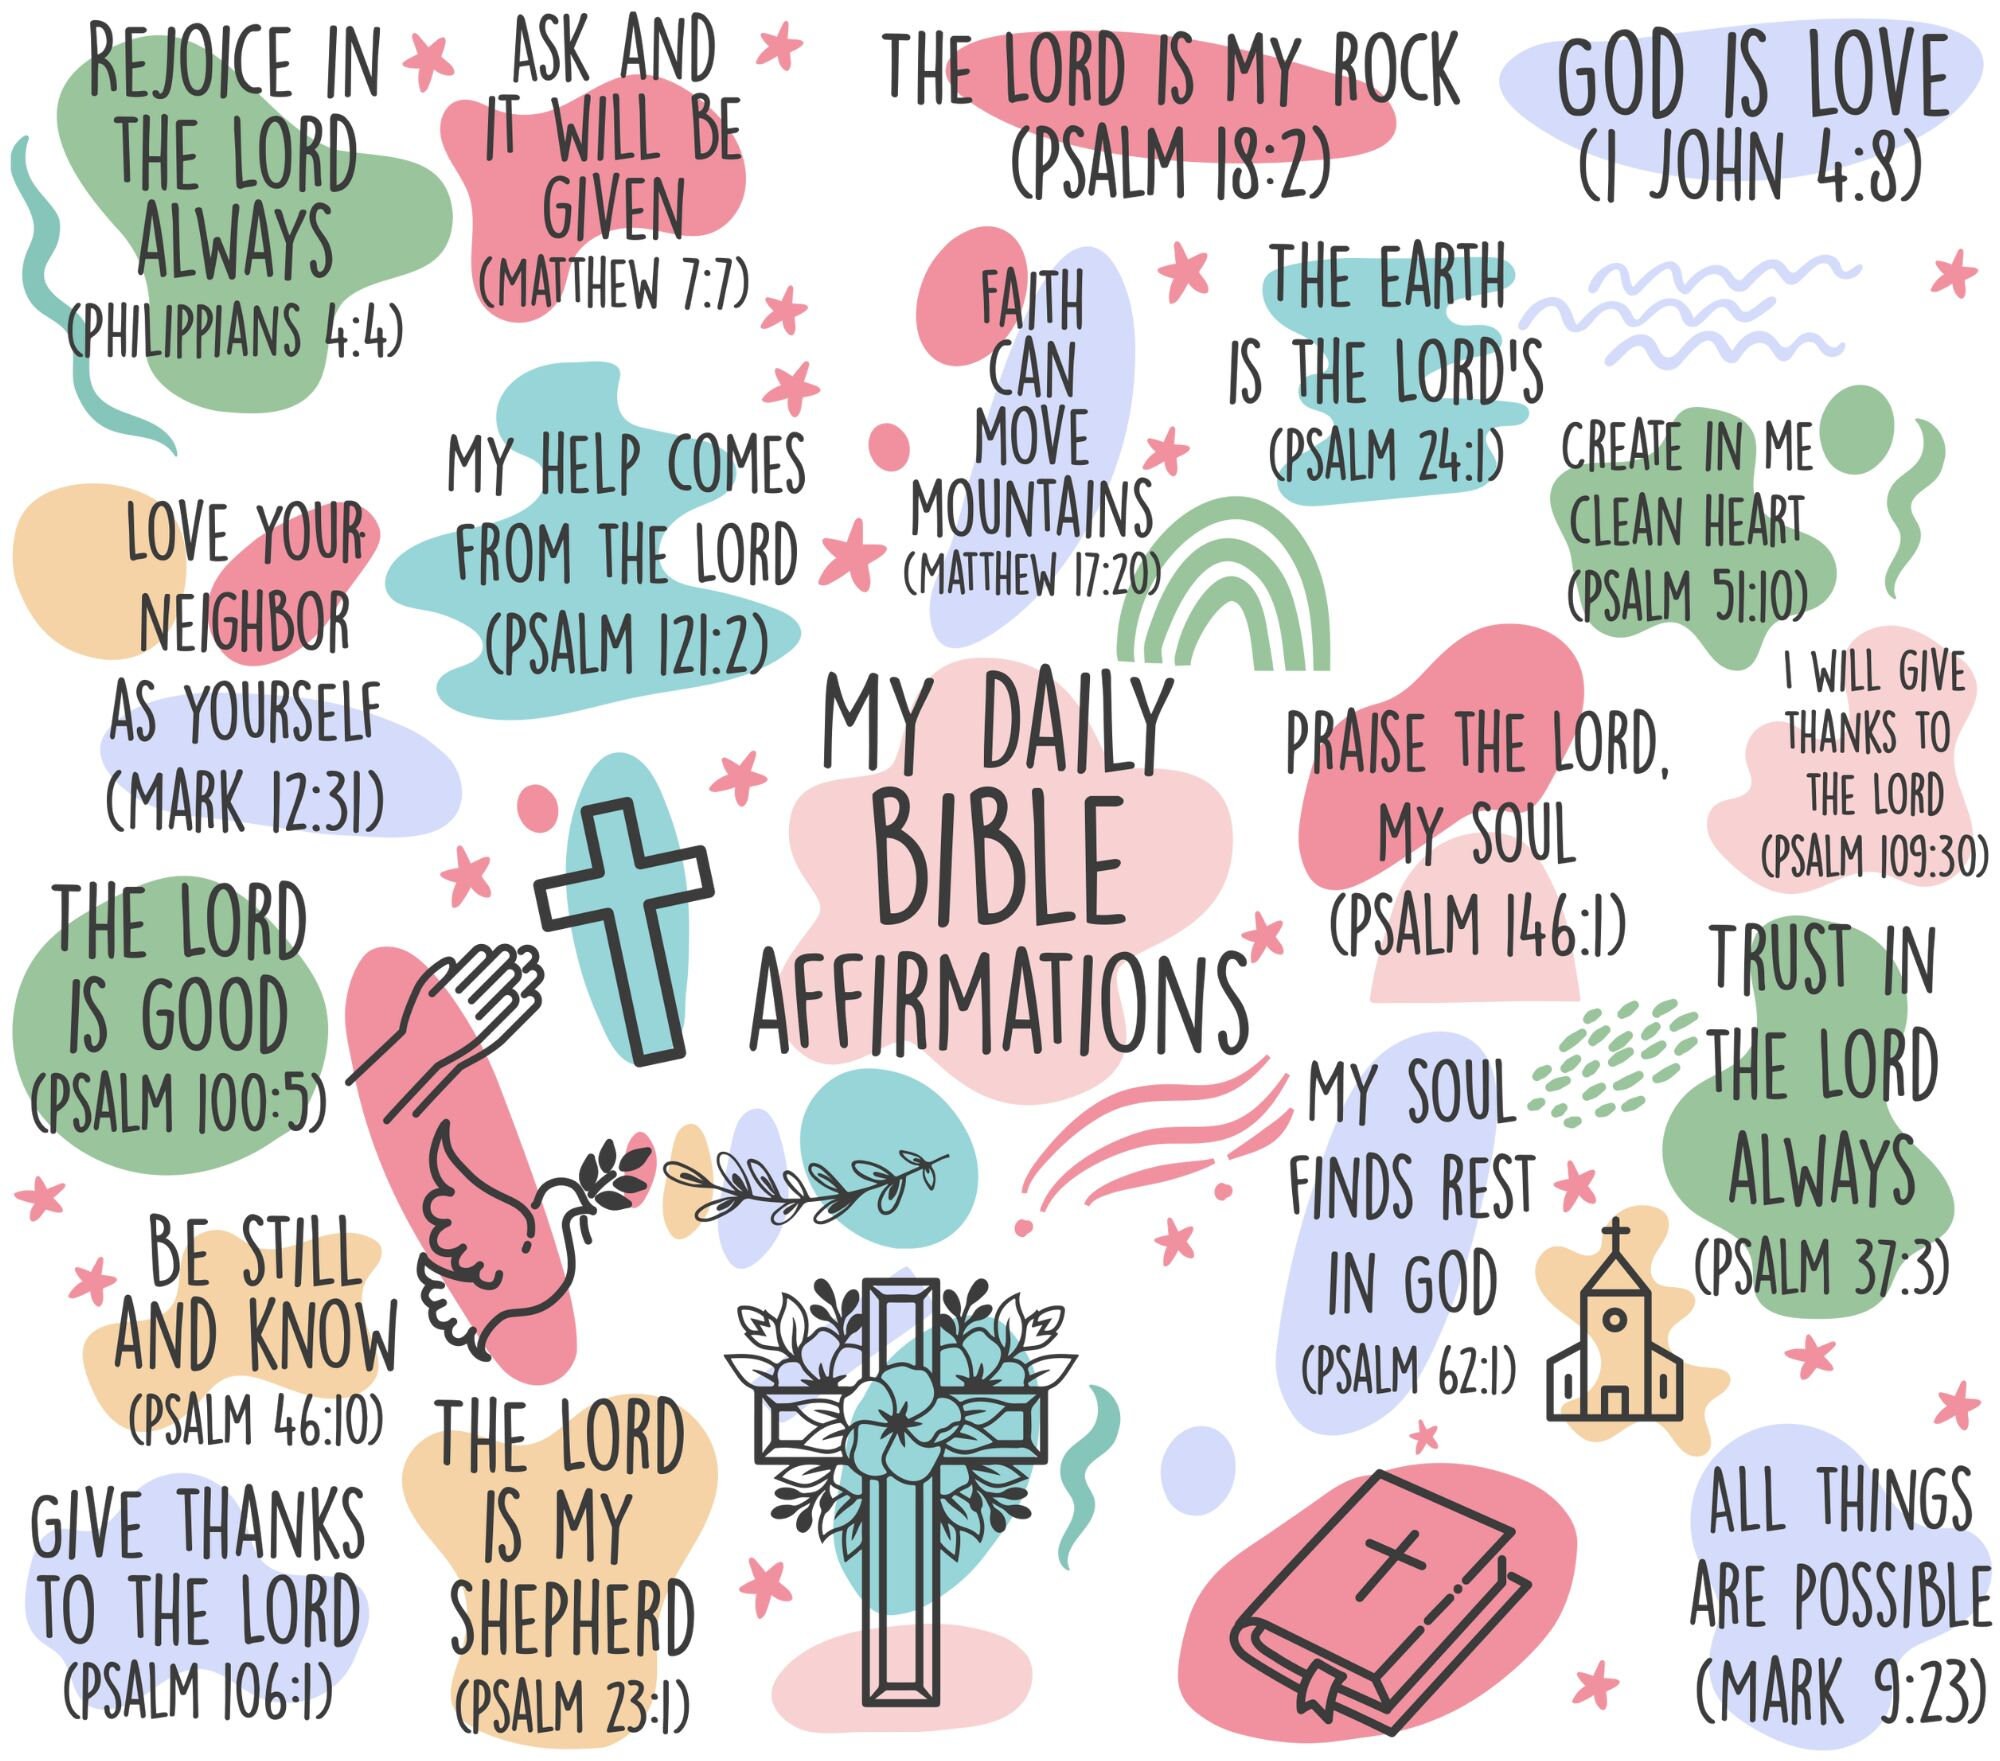 REJOICE IN
THE LORD
ALWAYS
(PHILIPPIANS 4:4)
ASK AND
IT WILL BE
GIVEN
(MATTHEW 7:7)
THE LORD IS MY ROCK
(PSALM 18:2)
GOD IS LOVE
(1 JOHN 4:8)
FAITH
CAN
MOVE
MOUNTAINS
(MATTHEW 17:20)
THE EARTH
IS THE LORD'S
(PSALM 24:1)
CREATE IN ME
CLEAN HEART
(PSALM 51:10)
LOVE YOUR
NEIGHBOR
AS YOURSELF
(MARK 12:31)
MY HELP COMES
FROM THE LORD
(PSALM 121:2)
MY DAILY
BIBLE
AFFIRMATIONS
PRAISE THE LORD,
MY SOUL
(PSALM 146:1)
I WILL GIVE
THANKS TO
THE LORD
(PSALM 109:30)
THE LORD
IS GOOD
(PSALM 100:5)
TRUST IN
THE LORD
ALWAYS
(PSALM 37:3)
MY SOUL
FINDS REST
IN GOD
(PSALM 62:1)
BE STILL
AND KNOW
(PSALM 46:10)
GIVE THANKS
TO THE LORD
(PSALM 106:1)
THE LORD
IS MY
SHEPHERD
(PSALM 23:1)
ALL THINGS
ARE POSSIBLE
(MARK 9:23)